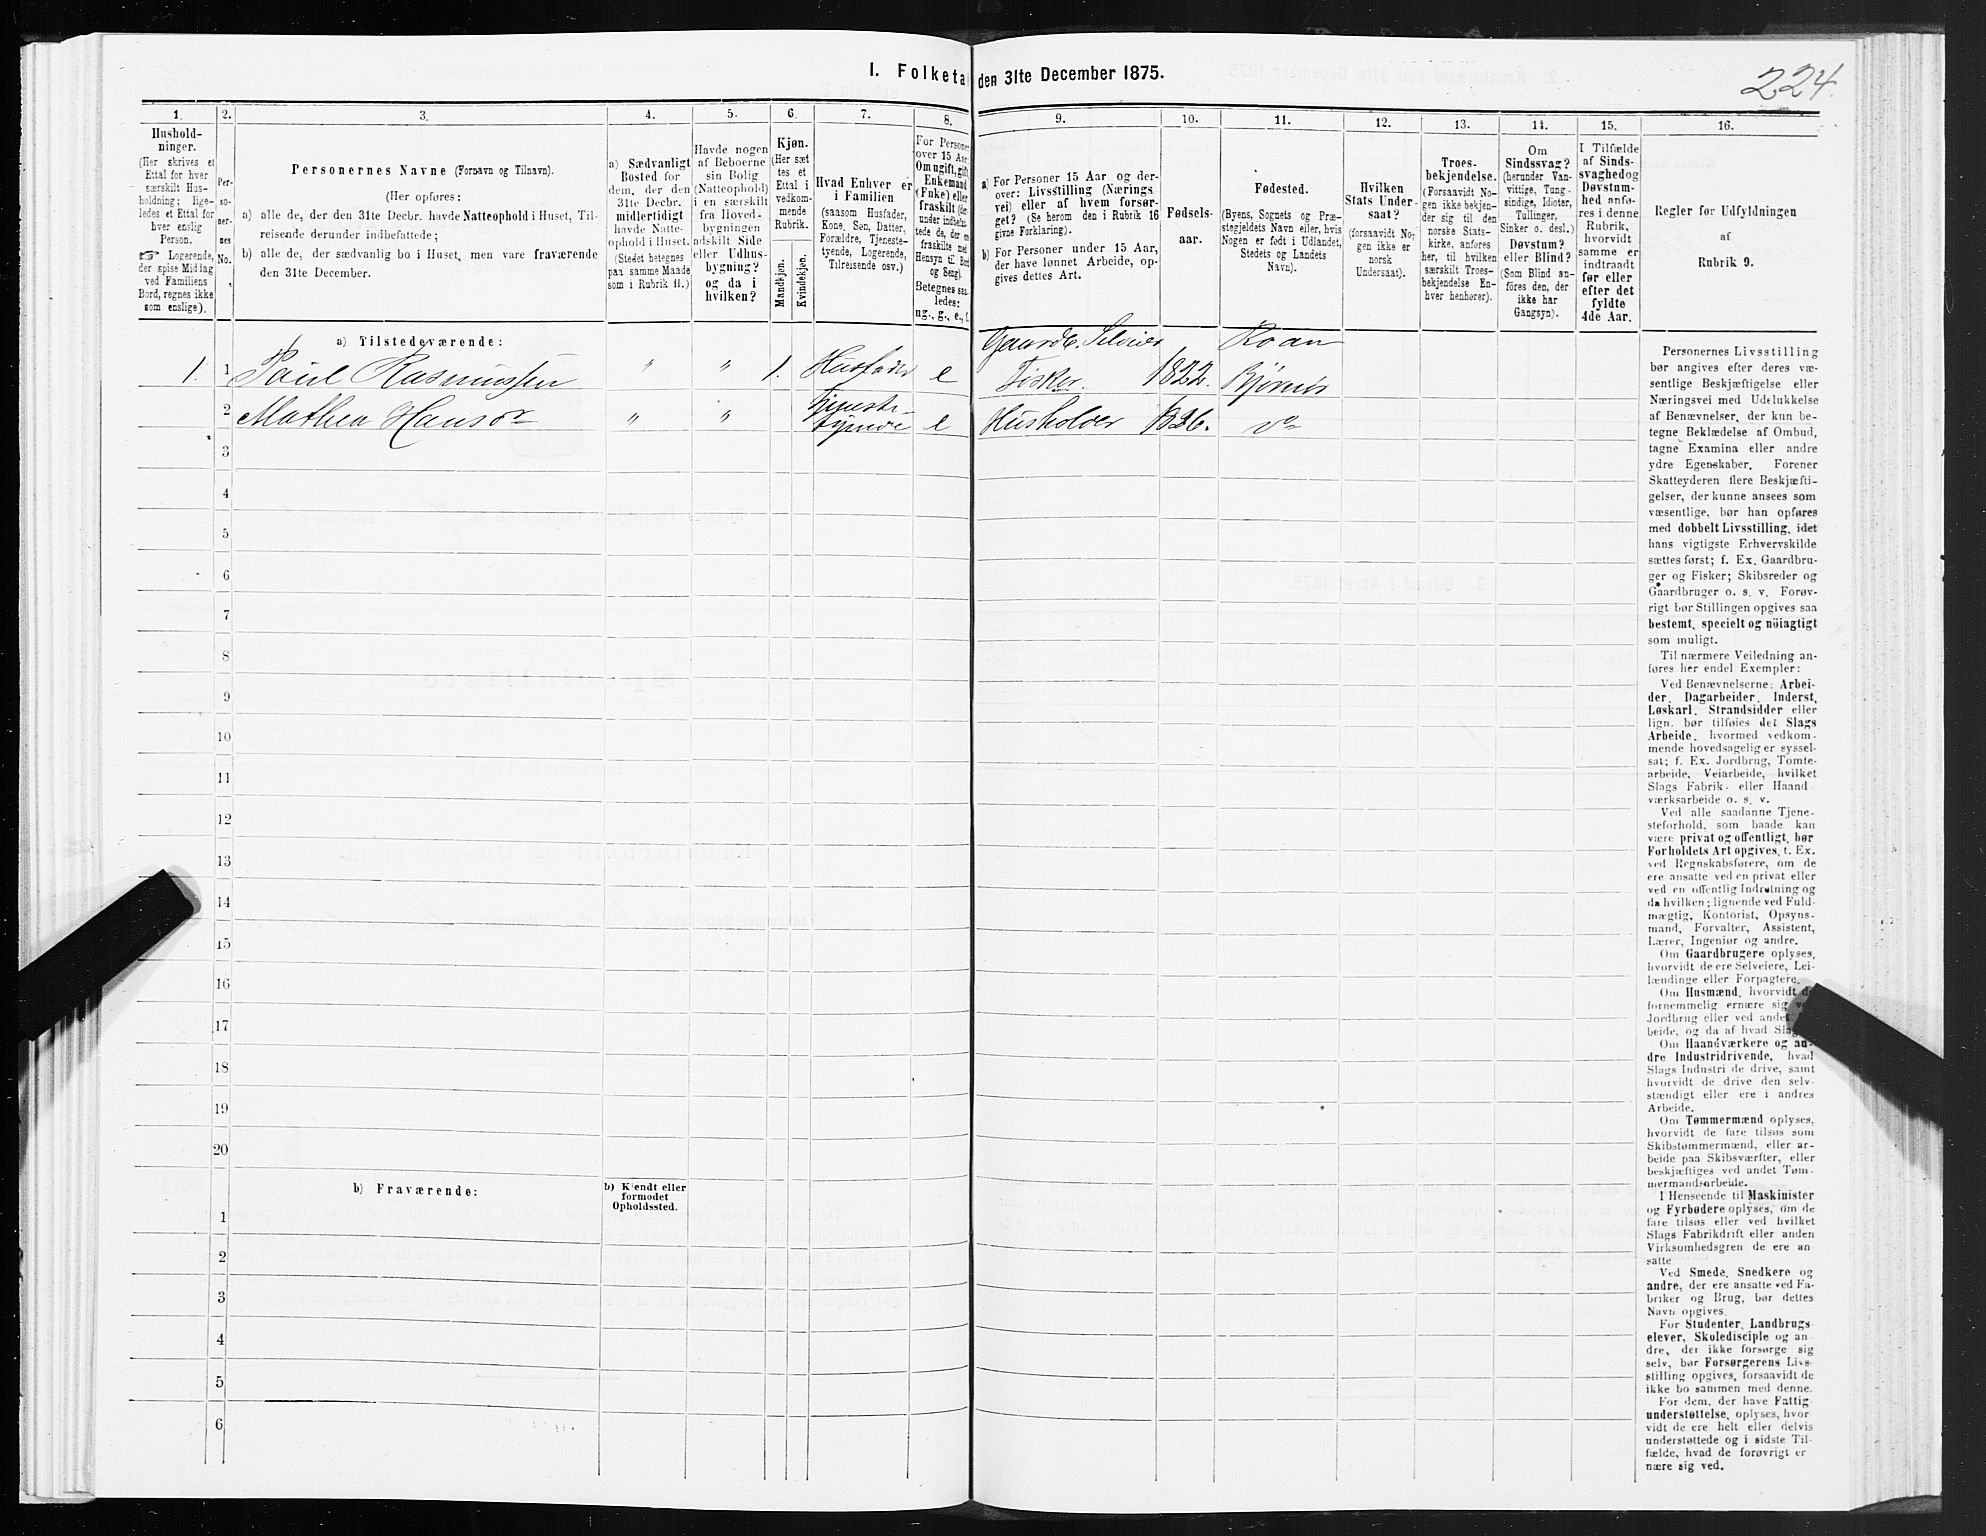 I. Folketal den 31te December 1875.
224.
1.
Hushold-
ninger.
(Her skrives et
Ettal for hver
særskilt Hus-
holdning; lige-
ledes et Ettal for
hver enslig
Person.
☞ Logerende,
der spise Middag
ved Familiens
Bord, regnes ikke
som enslige).
2.
Per-
so-
ner-
nes
No.
3.
Personernes Navne (Fornavn og Tilnavn).
(Her opføres:
a) alle de, der den 31te Decbr. havde Natteophold i Huset, Til-
reisende derunder indbefattede;
b) alle de, der sædvanlig bo i Huset, men vare fraværende
den 31te December.
4.
a) Sædvanligt
Bosted for
dem, der den
31te Decbr.
midlertidigt
havde Natte-
ophold i Huset.
(Stedet betegnes
paa samme Maade
som i Rubrik 11.)
5.
Havde nogen
af Beboerne
sin Bolig
(Natteophold)
i en særskilt
fra Hoved-
bygningen
adskilt Side
eller Udhus-
bygning?
og da i
hvilken?
6.
Kjøn.
(Her sæt
tes et
Ettal i
vedkom-
mende
Rubrik.
Mandkjøn.
Kvindekjøn.
7.
Hvad Enhver er
i Familien
(saasom Husfader,
Kone, Søn, Datter,
Forældre, Tjeneste-
tyende, Logerende,
Tilreisende osv.)
8.
For Personer
over 15 Aar
Om ugift, gift,
Enkemand
(Enke) eller
fraskilt (der-
under indbefat-
tede de, der ere
fraskilte med
Hensyn til Bord
og Seng).
Betegnes saa-
ledes:
ug., g., e., f.
9.
a) For Personer 15 Aar og der-
over: Livsstilling (Nærings
vei) eller af hvem forsør-
get? (Se herom den i Rubrik 16
givne Forklaring).
b) For Personer under 15 Aar,
der have lønnet Arbeide, op-
gives dettes Art.
10.
Fødsels-
aar.
11.
Fødested.
(Byens, Sognets og Præ-
stegjeldets Navn eller, hvis
Nogen er født i Udlandet,
Stedets og Landets
Navn).
12.
Hvilken
Stats Under-
saat?
(forsaavidt No-
gen ikke er
norsk
Undersaat).
13.
Troes-
bekjendelse.
(Forsaavidt No-
gen ikke bekjen-
der sig til den
norske Stats-
kirke, anføres
her, til hvilken
særskilt Troes-
bekjendelse En-
hver henhører).
14.
Om
Sindssvag?
(herunder Van-
vittige, Tung-
sindige, Idioter,
Tullinger,
Sinker o. desl.)
Døvstum?
eller Blind?
(Som Blind an-
føres den, der
ikke har
Gangsyn).
15.
I Tilfælde
af Sinds-
svaghed og
Døvstum-
hed anfø-
res i denne
Rubrik,
hvorvidt
samme er
indtraadt
før eller
efter det
fyldte
4de Aar.
16.
Regler for Udfyldningen
af
Rubrik 9.
a) Tilstedeværende:
Gaardb. Selveier Roan
1. 1 Paul Rasmussen " " 1. Husfader e Fisker. 1822. Bjørnør
2 Mathea Hansdr " " Tjeneste-
tyende e Husholder 1826. do
3
4
5
6
7
8
9
10
11
12
13
14
15
16
17
18
19
20
b) Fraværende:
b) Kjendt eller
formodet
Opholdssted.
1
2
3
4
5
6
Personernes Livsstilling
bør angives efter deres væ-
sentlige Beskjæftigelse eller
Næringsvei med Udelukkelse
af Benævnelser, der kun be-
tegne Beklædelse af Ombud,
tagne Examina eller andre
ydre Egenskaber. Forener
Skatteyderen flere Beskjæfti-
gelser, der kunne ansees som
væsentlige, bør han opføres
med dobbelt Livsstilling, idet
hans vigtigste Erhvervskilde
sættes først; f. Ex. Gaardbru-
ger og Fisker; Skibsreder og
Gaardbruger o. s. v. Forøv-
rigt bør Stillingen opgives saa
bestemt, specielt og nöiagtigt
som muligt.
Til nærmere Veiledning an-
føres her endel Exempler:
Ved Benævnelserne: Arbei-
der, Dagarbeider, Inderst,
Løskarl, Strandsidder eller
lign. bør tilføies det Slags
Arbeide, hvormed vedkom-
mende hovedsagelig er syssel-
sat; f. Ex. Jordbrug, Tomte-
arbeide, Veiarbeide, hvilket
Slags Fabrik- eller Haand-
værksarbeide o. s. v.
Ved alle saadanne Tjene-
steforhold, som baade kan
være privat og offentligt, bør
Forholdets Art opgives, f. Ex.
ved Regnskabsførere, om de
ere ansatte ved en privat eller
ved en offentlig Indretning og
da hvilken; lignende ved Fuld-
mægtig, Kontorist, Opsyns-
mand, Forvalter, Assistent,
Lærer, Ingeniør og andre.
Om Gaardbrugere oplyses,
hvorvidt de ere Selveiere, Lei-
lændinge eller Forpagtere.
Om Husmænd, hvorvidt de
fornemmelig ernære sig ved
Jordbrug eller ved andet
beide, og da af hvad Slags
Om Haandværkere og an-
dre Industridrivende, hvad
Slags Industri de drive, samt
hvorvidt de drive den selv-
stændigt eller ere i andres
Arbeide.
Om Tømmermænd oplyses,
hvorvidt de fare tilsøs som
Skibstømmermænd, eller ar-
beide paa Skibsværfter, eller
beskjæftiges ved andet Tøm-
mermandsarbeide.
I Henseende til Maskinister
og Fyrbødere oplyses, om de
fare tilsøs eller ved hvilket
Slags Fabrikdrift eller anden
Virksomhedsgren de ere an-
satte
Ved Smede, Snedkere og
andre, der ere ansatte ved Fa-
briker og Brug, bør dettes
Navn opgives.
For Studenter, Landbrugs
elever, Skoledisciple og an-
dre, der ikke forsørge sig
selv, bør Forsørgerens Livs-
stilling opgives, forsaavidt de
ikke bo sammen med denne.
For dem, der have Fattig
understøttelse, oplyses, hvor
vidt de ere helt eller delvis
understøttede og i sidste Til-
fælde, hvad de forøvrigt er
nære sig ved.